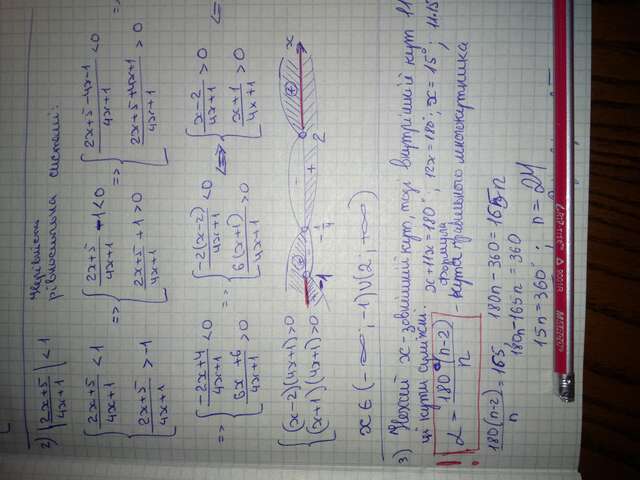 2) |2x+5 / 4x+1| < 1 Нерівність рівносильна системі:
{ 2x+5 / 4x+1 < 1 => { 2x+5 / 4x+1 - 1 < 0 => { 2x+5-4x-1 / 4x+1 < 0 =>
{ 2x+5 / 4x+1 > -1 { 2x+5 / 4x+1 + 1 > 0 { 2x+5+4x+1 / 4x+1 > 0
=> { -2x+4 / 4x+1 < 0 => { -2(x-2) / 4x+1 < 0 <=> { x-2 / 4x+1 > 0 <=
{ 6x+6 / 4x+1 > 0 { 6(x+1) / 4x+1 > 0 { x+1 / 4x+1 > 0
{ (x-2)(4x+1) > 0
{ (x+1)(4x+1) > 0
+ - + x
-1 -1/4 2
x ∈ (-∞; -1) ∪ (2; +∞)
3) Нехай x - зовнішній кут, тоді внутрішній кут 11
ці кути суміжні. x+11x=180°; 12x=180°; x=15°; 11·15
! α = 180°(n-2) / n - формула кута правильного многокутника
180(n-2) / n = 165 180n-360=165n
180n-165n=360
15n=360; n=24